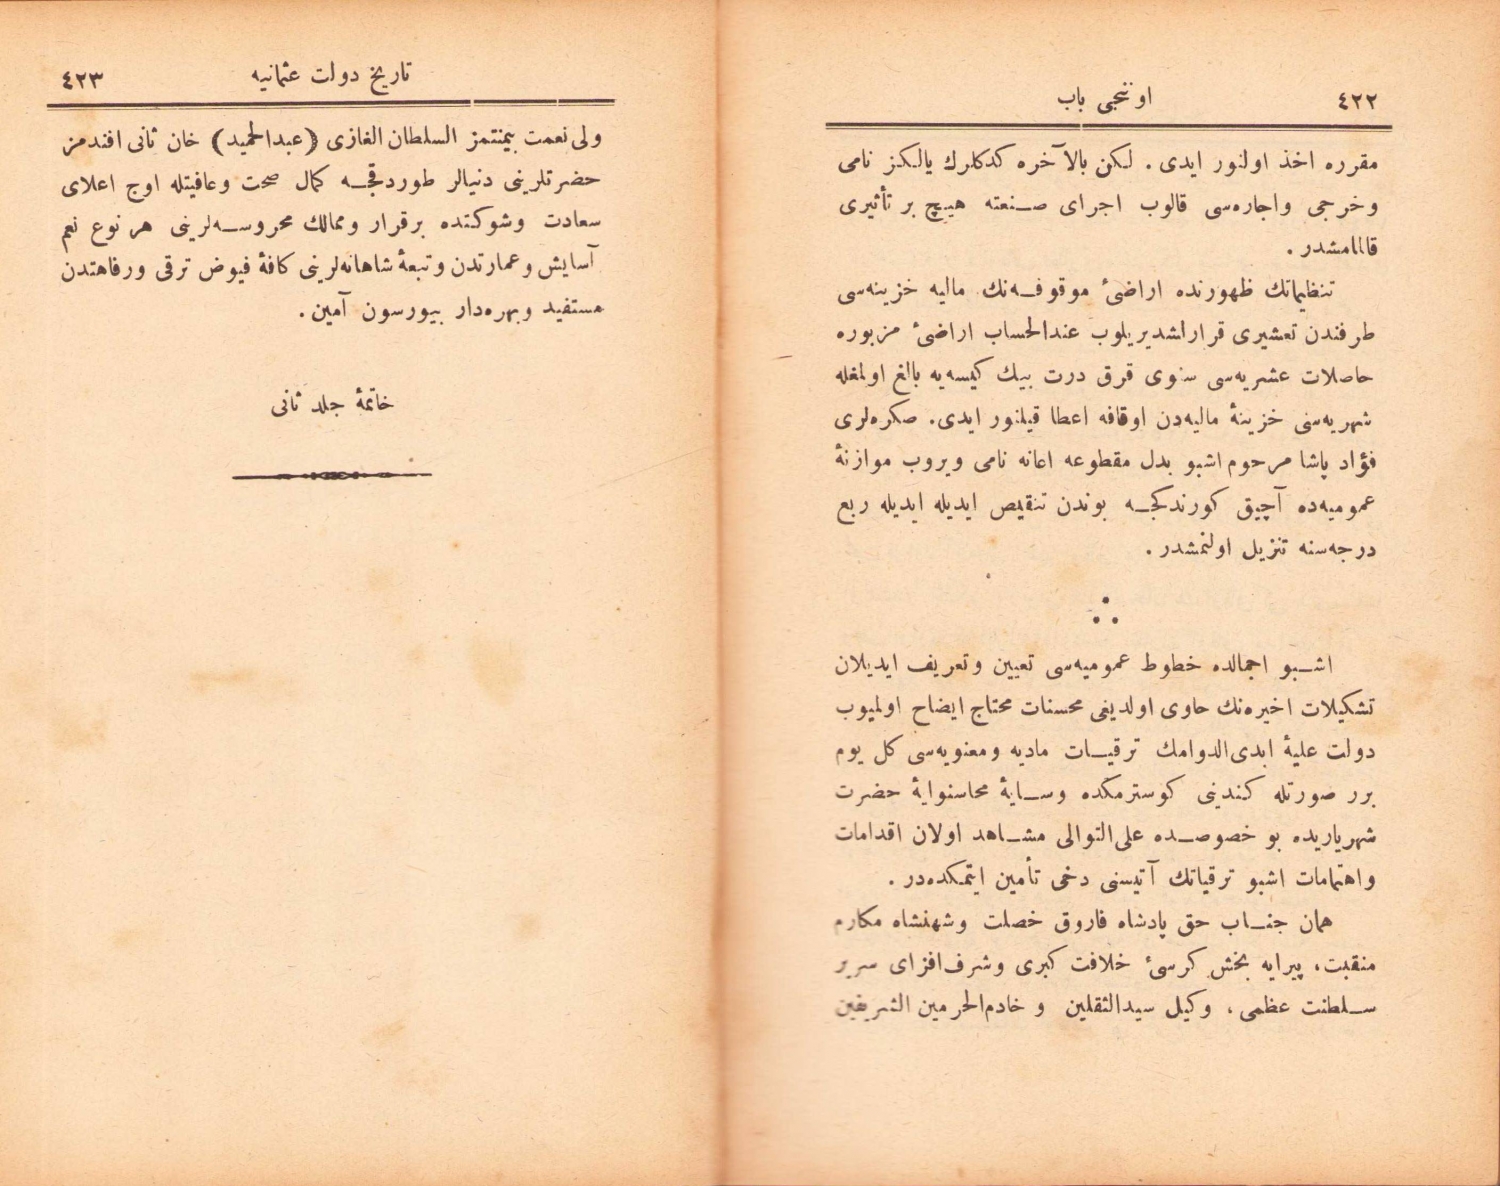 ٤٢٢
اوننجی باب
مقرره اخذ اولنور ایدی . لكن بالآخره كدكلرك یالكز نامی
وخرجی واجاره‌سی قالوب اجرای صنعته هیچ بر تأثیری
قالمامشدر .
تنظیماتك ظهورنده اراضیٔ موقوفه‌نك مالیه خزینه‌سی
طرفندن تعشیری قرارلشدیریلوب عندالحساب اراضیٔ مزبوره
حاصلات عشریه‌سی سنوی قرق درت بیك كیسه‌یه بالغ اولمغله
شهریه‌سنی خزینهٔ مالیه‌دن اوقافه اعطا قیلنور ایدی. صكره‌لری
فؤاد پاشا مرحوم اشبو بدل مقطوعه اعانه نامی ویروب موازنهٔ
عمومیه‌ده آچیق كورندكجه بوندن تنقیص ایدیله ایدیله ربع
درجه‌سنه تنزیل اولنمشدر .
اشبو اجمالده خطوط عمومیه‌سی تعیین وتعریف ایدیلان
تشكیلات اخیره‌نك حاوی اولدیغی محسنات محتاج ایضاح اولمیوب
دولت علیهٔ ابدی‌الدوامك ترقیات مادیه ومعنویه‌سی كل یوم
برر صورتله كندینی كوسترمكده وسایهٔ محاسنوایهٔ حضرت
شهریاریده بو خصوصده علی‌التوالی مشاهد اولان اقدامات
واهتمامات اشبو ترقیاتك آتیسنی دخی تأمین ایتمكده‌در .
همان جناب حق پادشاه فاروق خصلت وشهنشاه مكارم
منقبت، پیرایه بخش كرسیٔ خلافت كبری وشرف‌افزای سریر
سلطنت عظمی، وكیل سیدالثقلین و خادم‌الحرمین الشریفین
تاریخ دولت عثمانیه
٤٢٣
ولی نعمت بیمنتمز السلطان الغازی (عبدالحمید) خان ثانی افندمز
حضرتلرینی دنیالر طوردقجه كمال صحت وعافیتله اوج اعلای
سعادت وشوكتده برقرار وممالك محروسه‌لرینی هر نوع نعم
آسایش وعمارتدن وتبعهٔ شاهانه‌لرینی كافهٔ فیوض ترقی ورفاهتدن
مستفید وبهره‌دار بیورسون آمین.
خاتمهٔ جلد ثانی